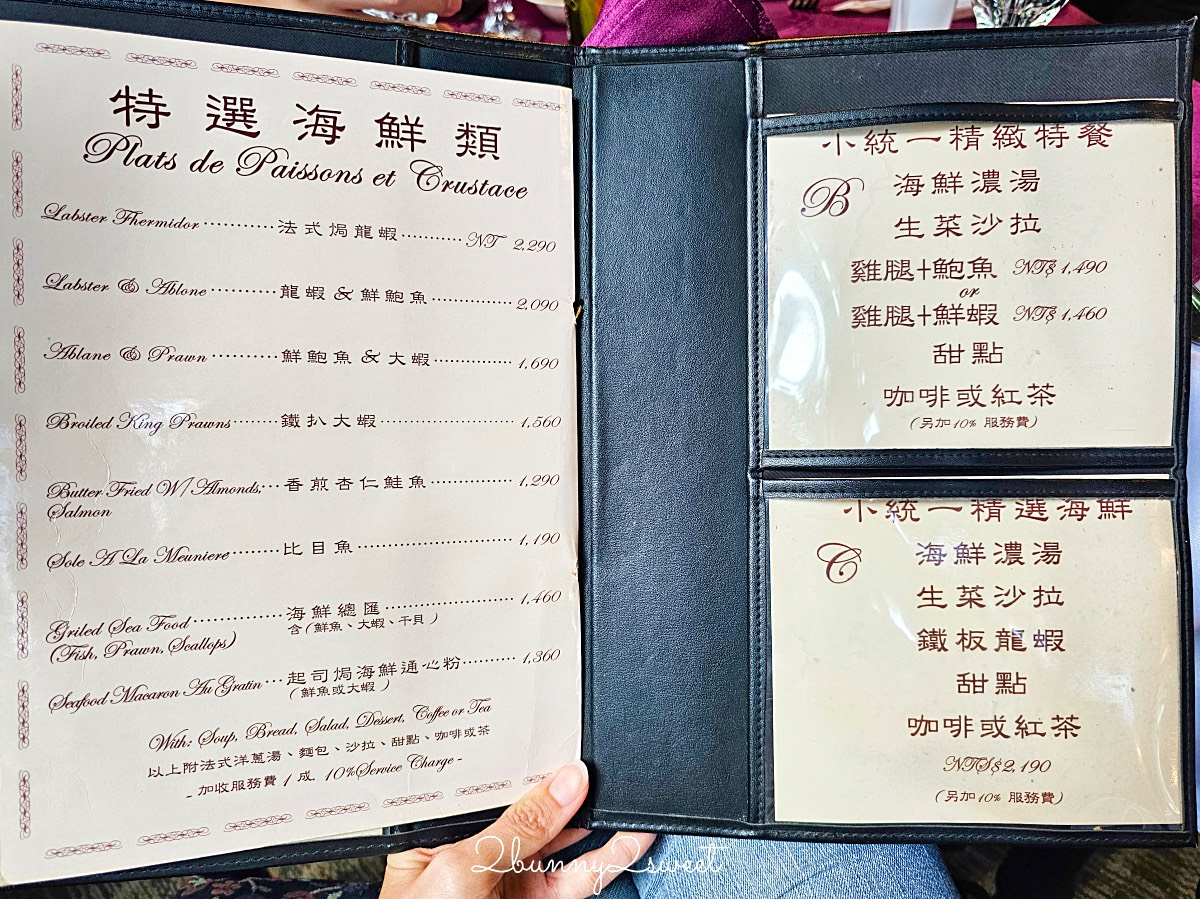 特選海鮮類
Plats de Paissons et Crustace
Labster Fhermidor ··········· 法式焗龍蝦 ·········· NT 2,290
Labster & Ablone ·········· 龍蝦 & 鮮鮑魚 ············· 2,090
Ablane & Prawn ·········· 鮮鮑魚 & 大蝦 ············· 1,690
Broiled King Prawns ······· 鐵扒大蝦 ······················ 1,560
Butter Fried W/ Almonds; ··· 香煎杏仁鮭魚 ············· 1,290
Salmon
Sole A La Meuniere ········ 比目魚 ························· 1,190
Griled Sea Food ············· 海鮮總匯 ····················· 1,460
(Fish, Prawn, Scallops) 含(鮮魚、大蝦、干貝)
Seafood Macaron Au Gratin ··· 起司焗海鮮通心粉 ·········· 1,360
(鮮魚或大蝦)
With: Soup, Bread, Salad, Dessert, Coffee or Tea
以上附法式洋蔥湯、麵包、沙拉、甜點、咖啡或茶
- 加收服務費 1 成 10%Service Charge -
小統一精緻特餐
B 海鮮濃湯
生菜沙拉
雞腿+鮑魚 NT$ 1,490
or
雞腿+鮮蝦 NT$ 1,460
甜點
咖啡或紅茶
(另加10% 服務費)
小統一精選海鮮
C 海鮮濃湯
生菜沙拉
鐵板龍蝦
甜點
咖啡或紅茶
NTS$2,190
(另加10% 服務費)
2bunny2sweet